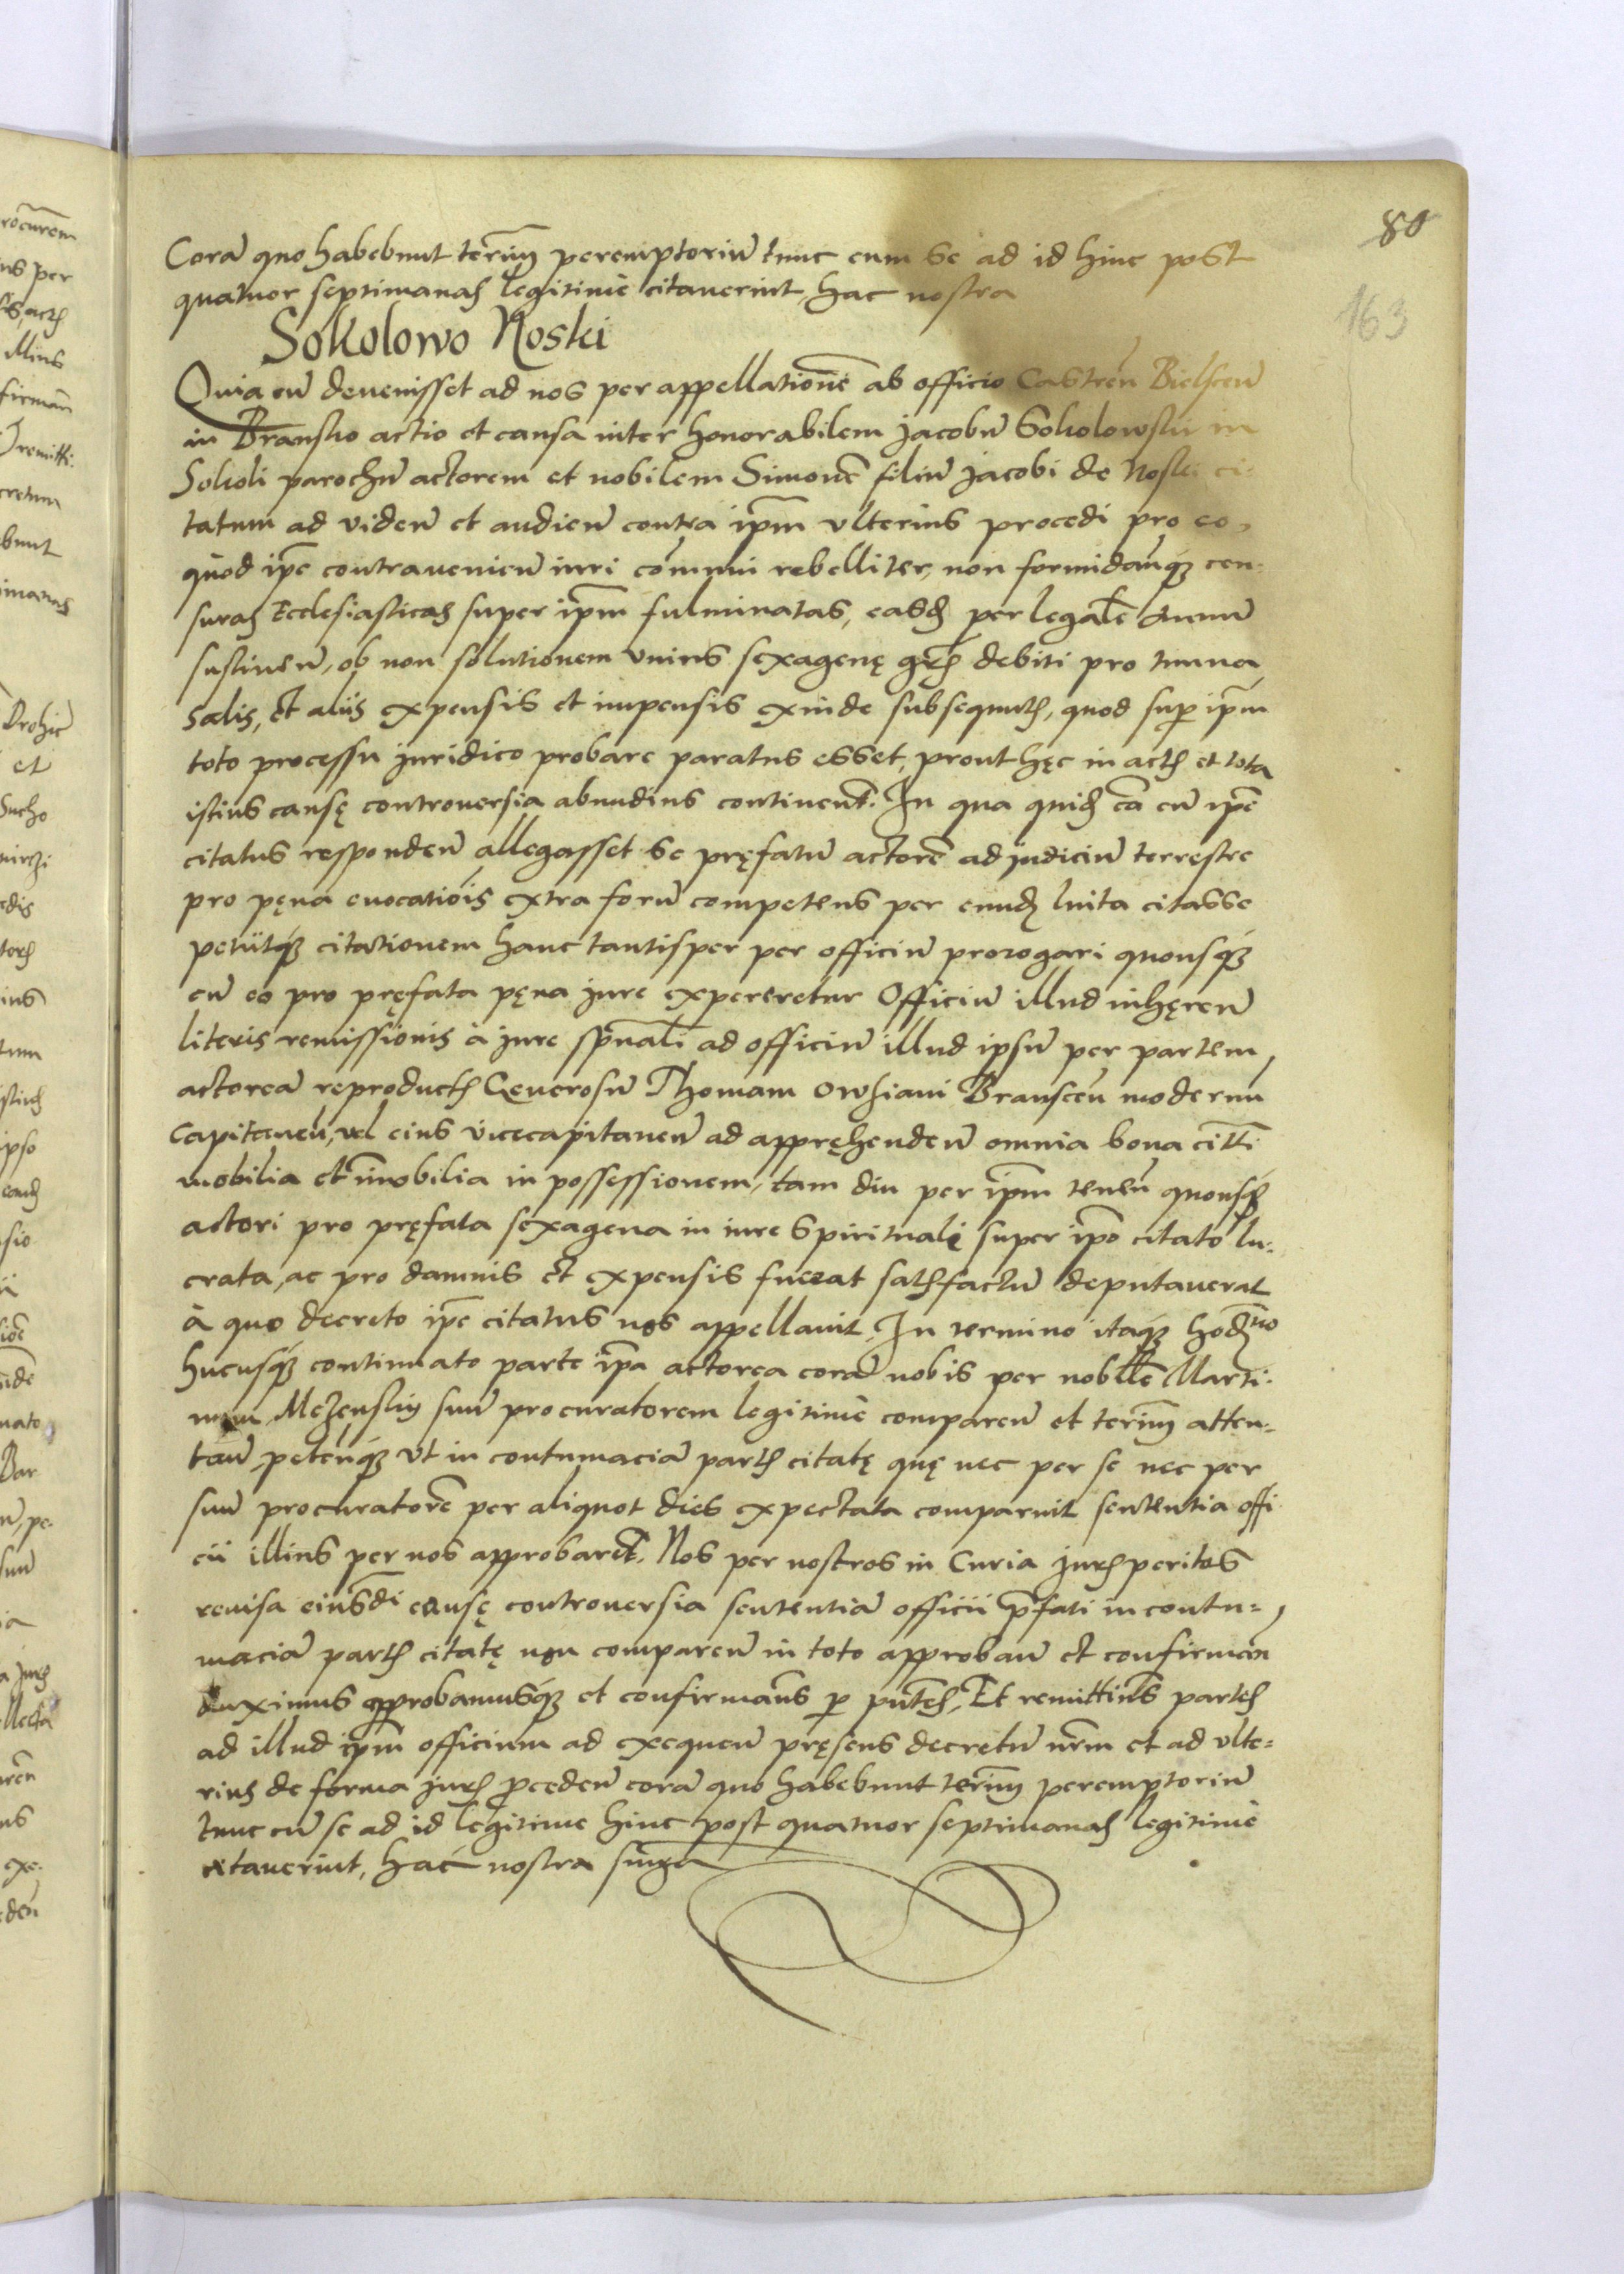 80
163
Corā quo habebunt termīn peremptoriū tunc cum se ad id hinc post
quatuor septimanas legitime citaverint, hac nostra
Sokolowo Noski
Quia cū devenisset ad nos per appellationē ab officio Castren̄ Bielscen̄
in Bransko actio et causa inter honorabilem Jacobū Sokolowski in
Sokoli parochū actorem et nobilem Simonē filiū Jacobi de Noski ci-
tatum ad viden̄ et audien̄ contra ip̄m vlterius procedi pro eo,
quod ip̄e contravenien̄ iuri com̄uni rebelliter, non formidan̄q̨ cen-
suras Ecclesiasticas super ip̄m fulminatas, easd̨ per legalē Annū
sustinen̄, ob non solutionem vnius sexagenę gr̄s debiti pro tunna
salis, et aliis expensis et impensis exinde subsequutis, quod sup̱ ip̄m
toto processu juridico probare paratus esset, prout hęc in actis et tota
istius causę controversia abundius continent. In qua quid̨ cā cū ip̄e
citatus responden̄ allegasset se pręfatū actorē ad judiciū terrestre
pro pęna evocatiōis extra forū competens per eund̨ luita citasse
petiitq̨ citationem hanc tantisper per officiū prorogari quousq̨
cū eo pro pręfata pęna jure expereretur Officiū illud inhęren̄
literis remissionis à jure sp̄uali ad officiū illud ipsū per partem
actoreā reproductis Generosū Thomam Owsiani Branscen̄ modernū
Capitaneū, vel eius vicecapitaneū ad appręhenden̄ omnia bona citti
mobilia et im̄obilia in possessionem, tam diu per ip̄m tenen̄ quousq̨
actori pro pręfata sexagena in iure Spirituali super ip̄o citato lu-
crata, ac pro damnis et expensis fuerat satisfactū deputaverat
à quo decreto ip̄e citatus nos appellavit, In termino itaq̨ hodierno
hucusq̨ continuato parte ip̄a actorea corā nobis per nobilē Marti-
num Mezenskij suū procuratorem legitime comparen̄ et termīn atten-
tan̄, peten̄q̨ vt in contumaciā partis citatę quę nec per se nec per
suū procuratorē per aliquot dies expectata comparuit sententia offi
cii illius per nos approbaret̄. Nos per nostros in Curia jurisperitos
revisa eiusdi causę controversia sententiā officii p̄fati in contu-
maciā partis citatę non comparen̄ in toto approban̄ et confirman̄
duximus approbamusq̨ et confirmam̄s p̱ pn̄tes, Et remittim̄s partes
ad illud ip̄m officium ad exequen̄ pręsens decretū nr̄m et ad vlte-
rius de forma juris p̄ceden̄ corā quo habebunt termīn peremptoriū
tunc cū se ad id legitime hinc post quatuor septimanas legitime
citaverint, hac nostra sn̄īa